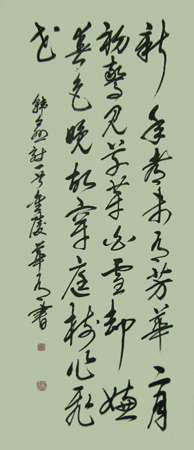 新年都未有芳華二月
初驚見草芽白雪却嫌
春色晚故穿庭樹作飛
花
韓愈詩一首金陵華書